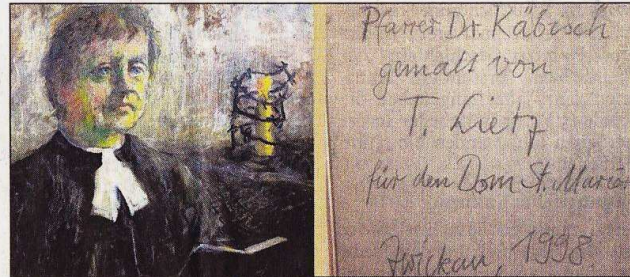 Pfarrer Dr. Käbisch
gemalt von
T. Lietz
für den Dom St. Marien
Zwickau, 1998.